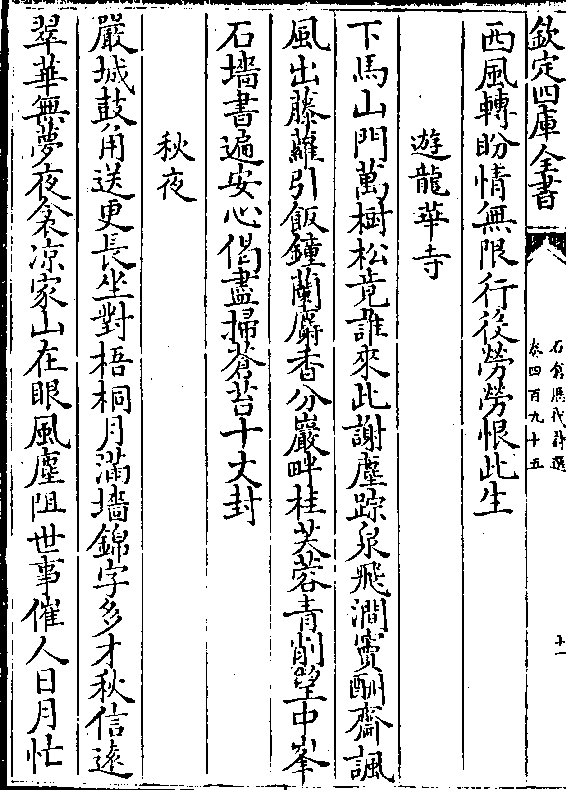 欽定四庫全書
石倉歷代詩選
卷四百九十五
十一
西風轉盼情無限行役勞勞恨此生
遊龍華寺
下馬山門萬樹松竟誰來此謝塵踪泉飛澗竇酬齋諷
風出藤蘿引飯鐘蘭麝香分巖畔桂芙蓉青削望中峯
石墻書遍安心偈盡掃蒼苔十丈封
秋夜
嚴城鼓角送更長坐對梧桐月滿墻錦字多才秋信遠
翠華無夢夜衾凉家山在眼風塵阻世事催人日月忙